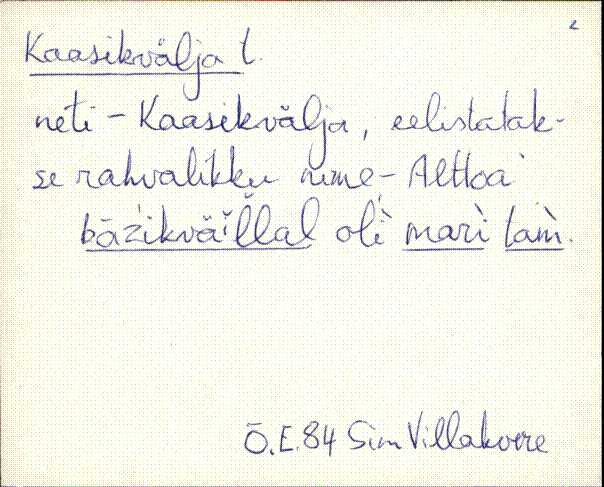 Kaasikvälja t.
neti – Kaasikvälja, eelistatak-
se rahvalikku nime – Alttoa
oli mari
Õ.E. 84 Sim Villakvere